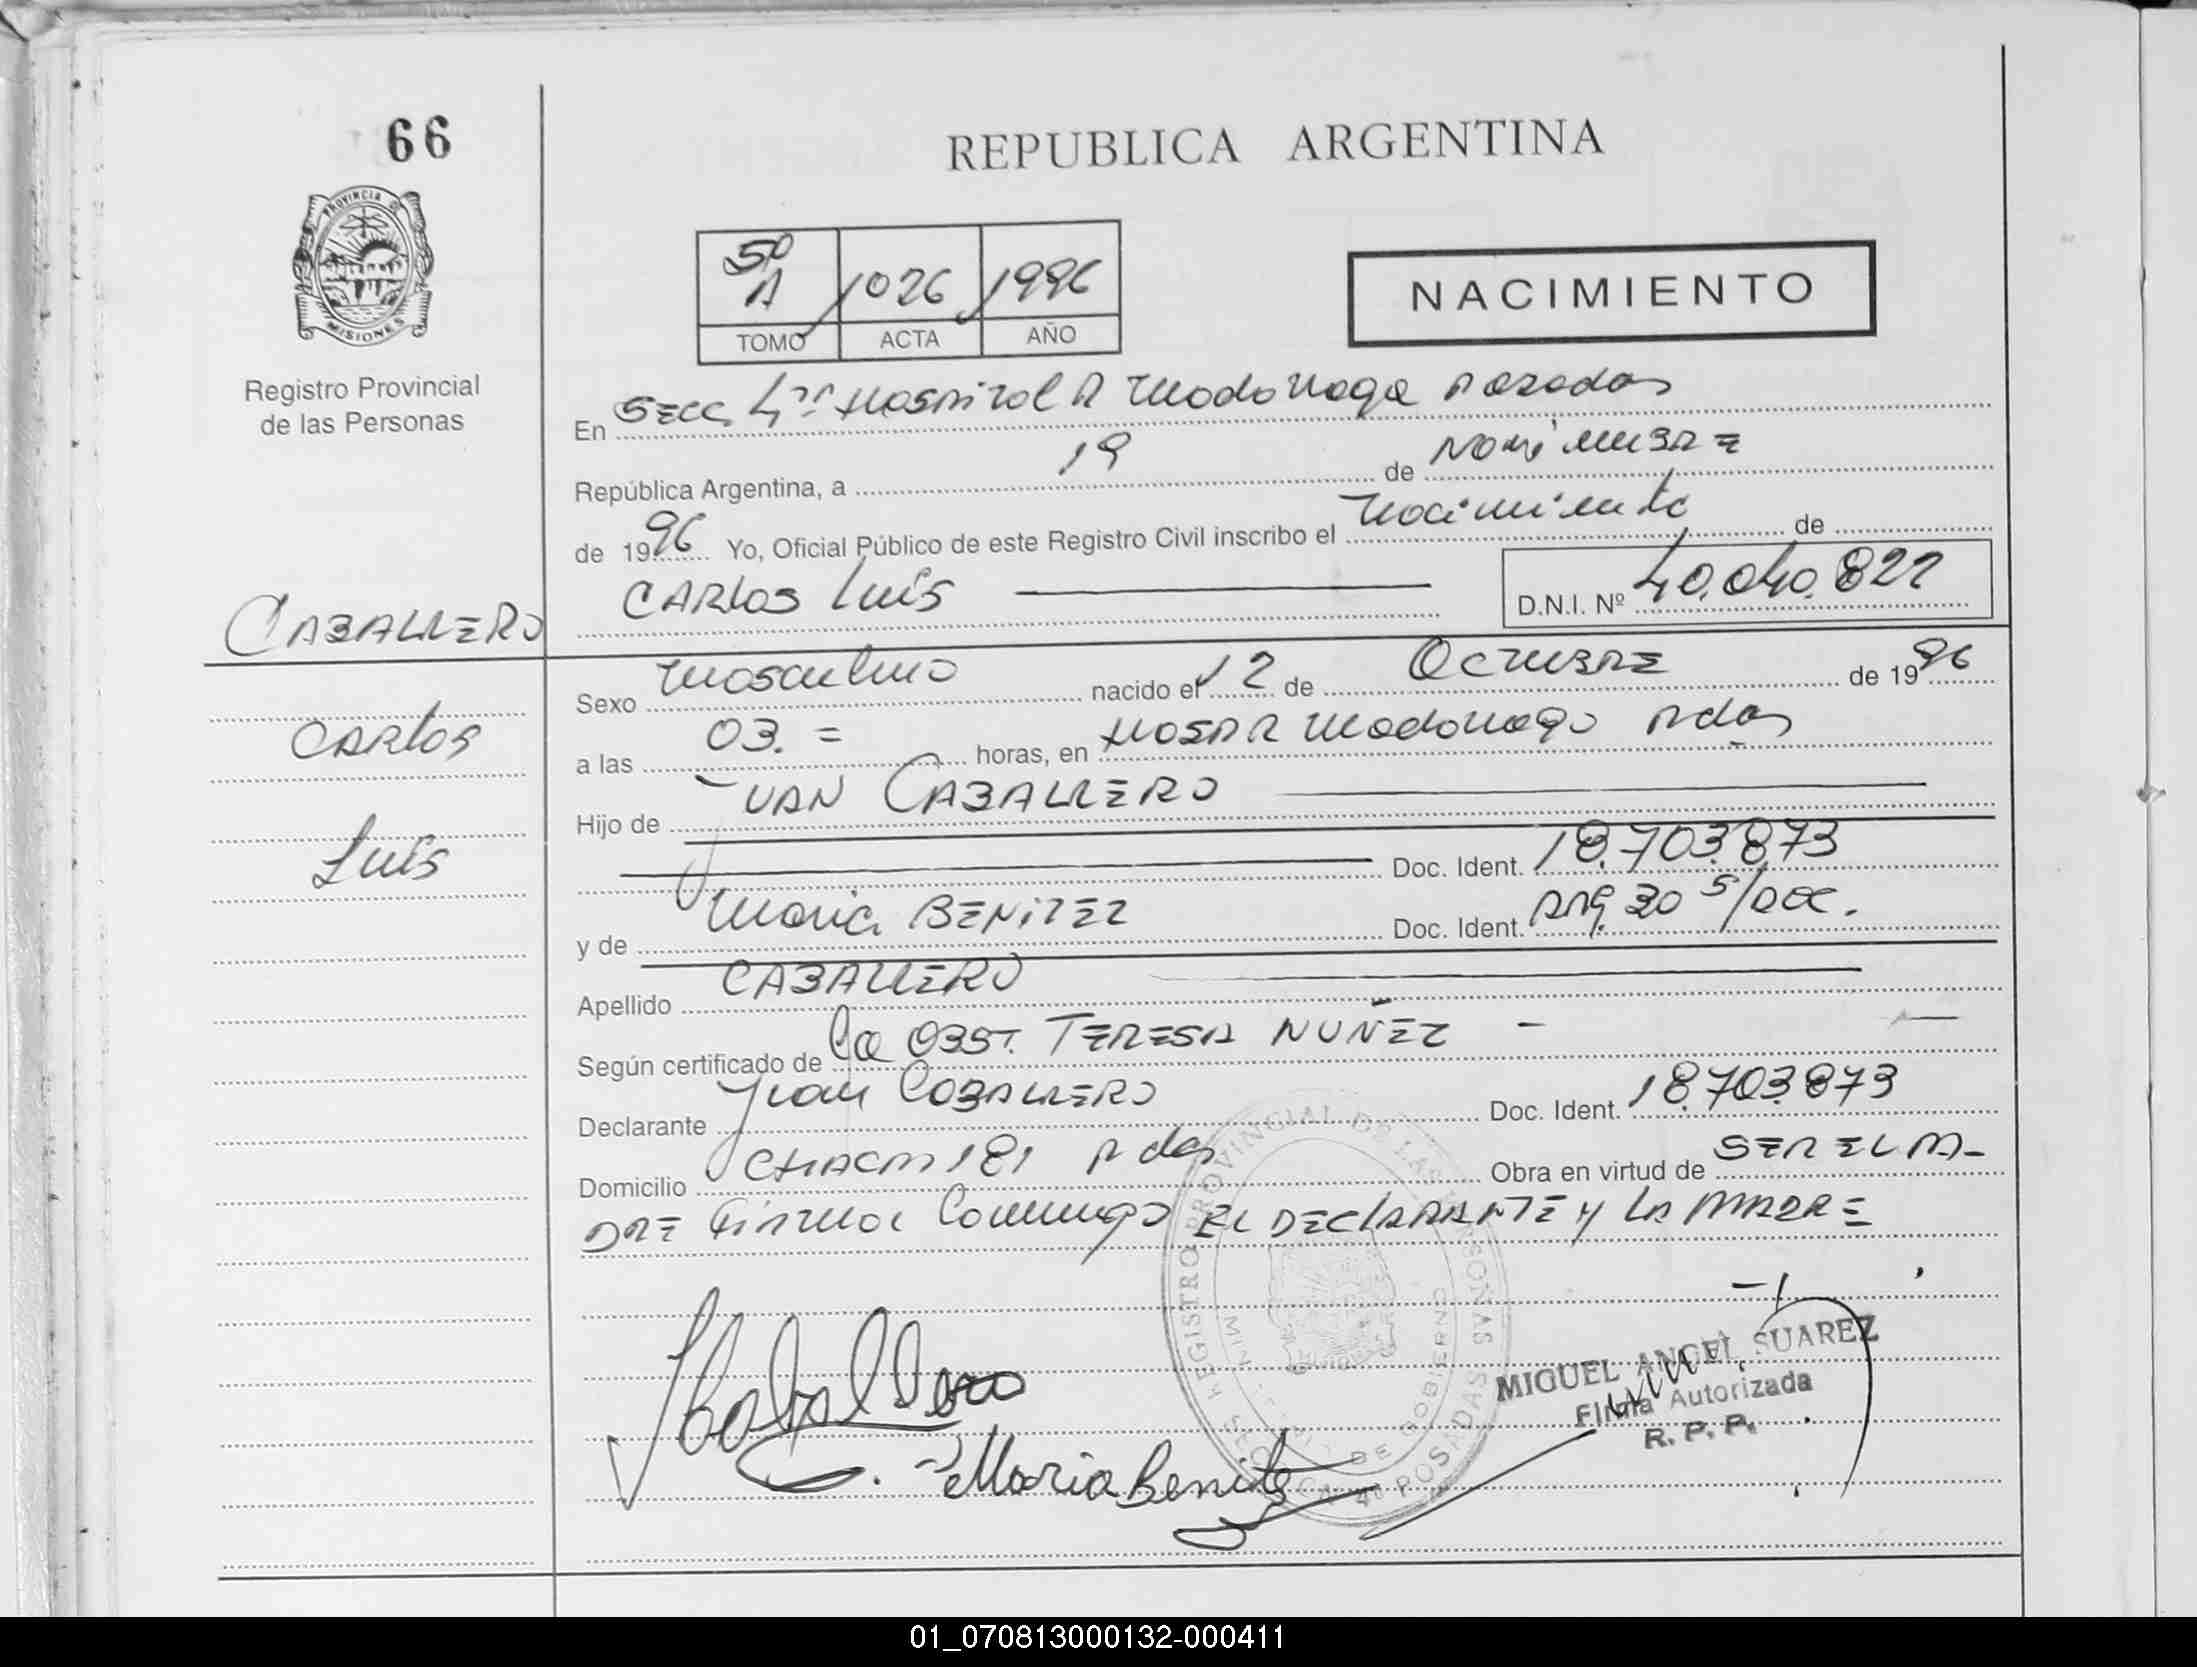 66
REPUBLICA ARGENTINA
PROVINCIA DE
MISIONES
Registro Provincial
de las Personas
5º A 1026 1996
TOMO ACTA AÑO
NACIMIENTO
En SECC 4ta HOSPITAL R Madariaga Posadas
República Argentina, a 19 de Noviembre
de 1996 Yo, Oficial Público de este Registro Civil inscribo el Nacimiento de
CARLOS LUIS D.N.I. Nº 40.040.822
CABALLERO
CARLOS
LUIS
Sexo Masculino nacido el 12 de OCTUBRE de 1996
a las 03.= horas, en HOSP R Madariaga Pdas
Hijo de JUAN CABALLERO
Doc. Ident. 18.703.873
y de Maria BENITEZ Doc. Ident. Arg. 30 S/DOC.
Apellido CABALLERO
Según certificado de la OBST. TERESA NUÑEZ -
Declarante Juan CABALLERO Doc. Ident. 18.703.873
Domicilio CHACRA 181 Pdas Obra en virtud de SER EL PA-
DRE Firma Conmigo EL DECLARANTE Y LA MADRE
REGISTRO PROVINCIAL DE LAS PERSONAS
DE GOBIERNO
4º POSADAS
MIGUEL ANGEL SUAREZ
Firma Autorizada
R. P. P.
JCaballero
Maria Benitez
01_070813000132-000411